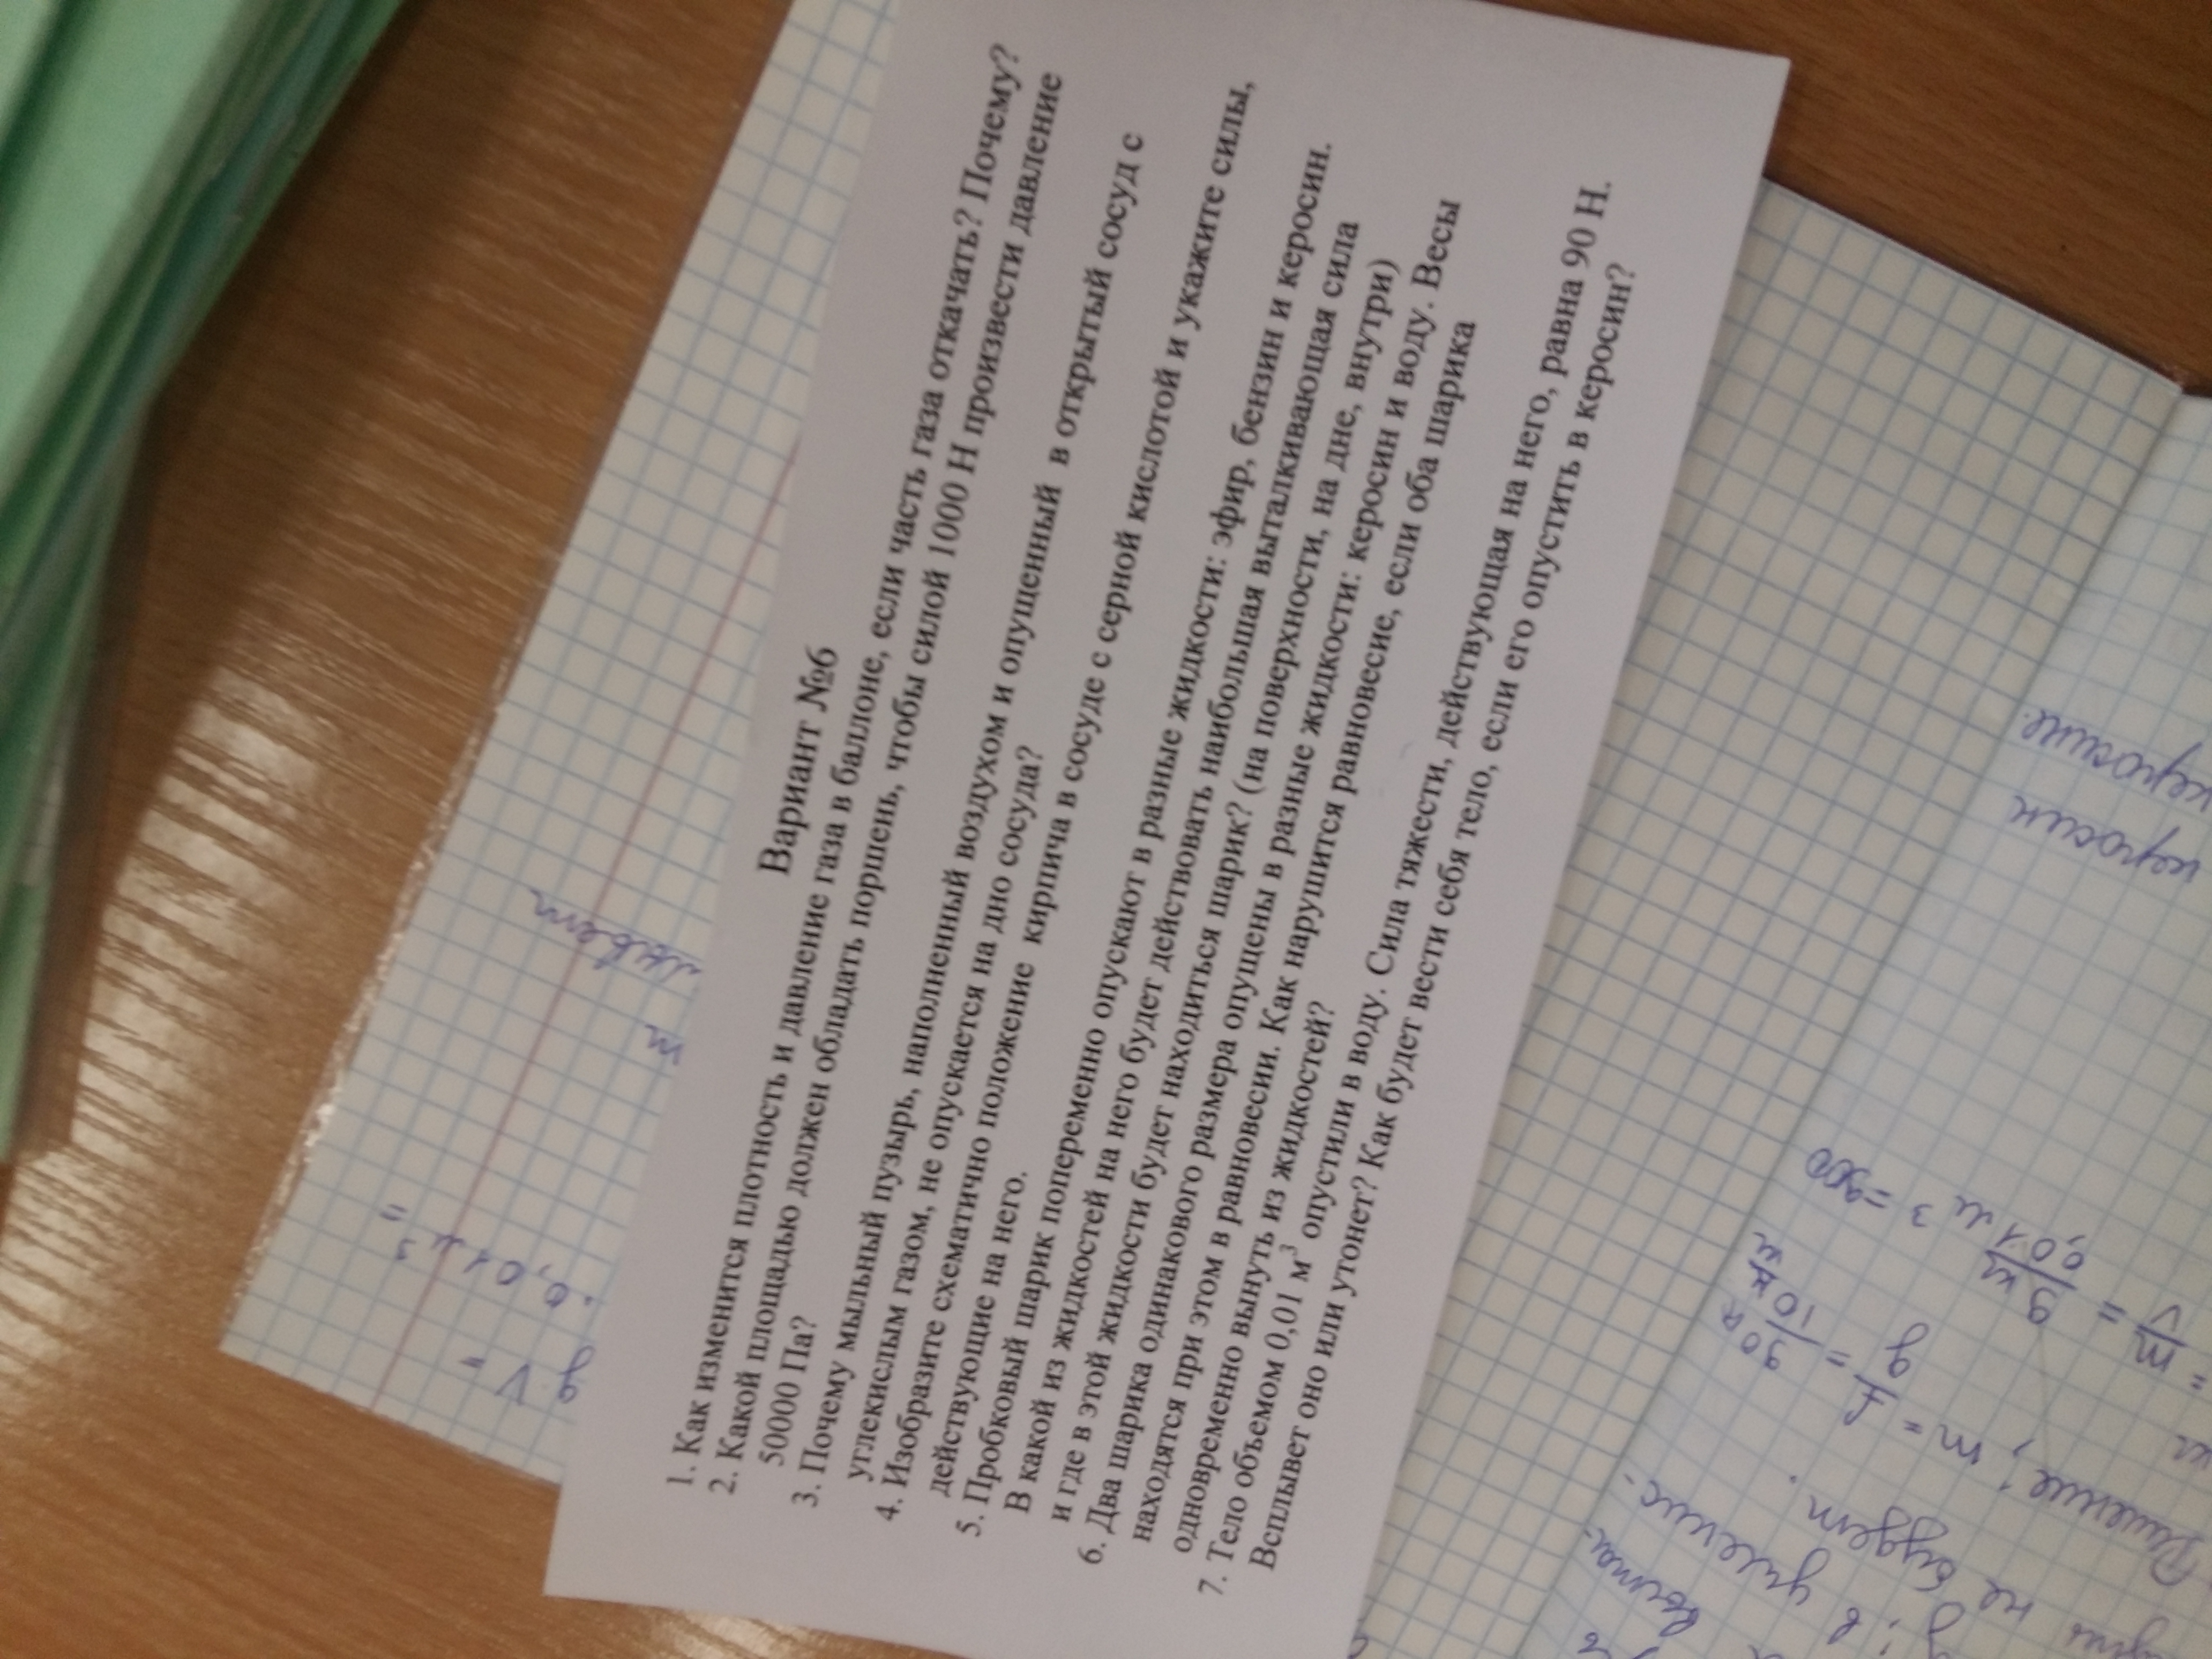 Вариант №6
1. Как изменится плотность и давление газа в баллоне, если часть газа откачать? Почему?
2. Какой площадью должен обладать поршень, чтобы силой 1000 Н произвести давление
50000 Па?
3. Почему мыльный пузырь, наполненный воздухом и опущенный в открытый сосуд с
углекислым газом, не опускается на дно сосуда?
4. Изобразите схематично положение кирпича в сосуде с серной кислотой и укажите силы,
действующие на него.
5. Пробковый шарик попеременно опускают в разные жидкости: эфир, бензин и керосин.
В какой из жидкостей на него будет действовать наибольшая выталкивающая сила
и где в этой жидкости будет находиться шарик? (на поверхности, на дне, внутри)
6. Два шарика одинакового размера опущены в разные жидкости: керосин и воду. Весы
находятся при этом в равновесии. Как нарушится равновесие, если оба шарика
одновременно вынуть из жидкостей?
7. Тело объемом 0,01 м³ опустили в воду. Сила тяжести, действующая на него, равна 90 Н.
Всплывет оно или утонет? Как будет вести себя тело, если его опустить в керосин?
g V =
0,01 м³ =
не будет.
Решение: m = F/g = 90 Н/10
= m/V = 9 кг/0,01 м³ = 900
керосин
керосине